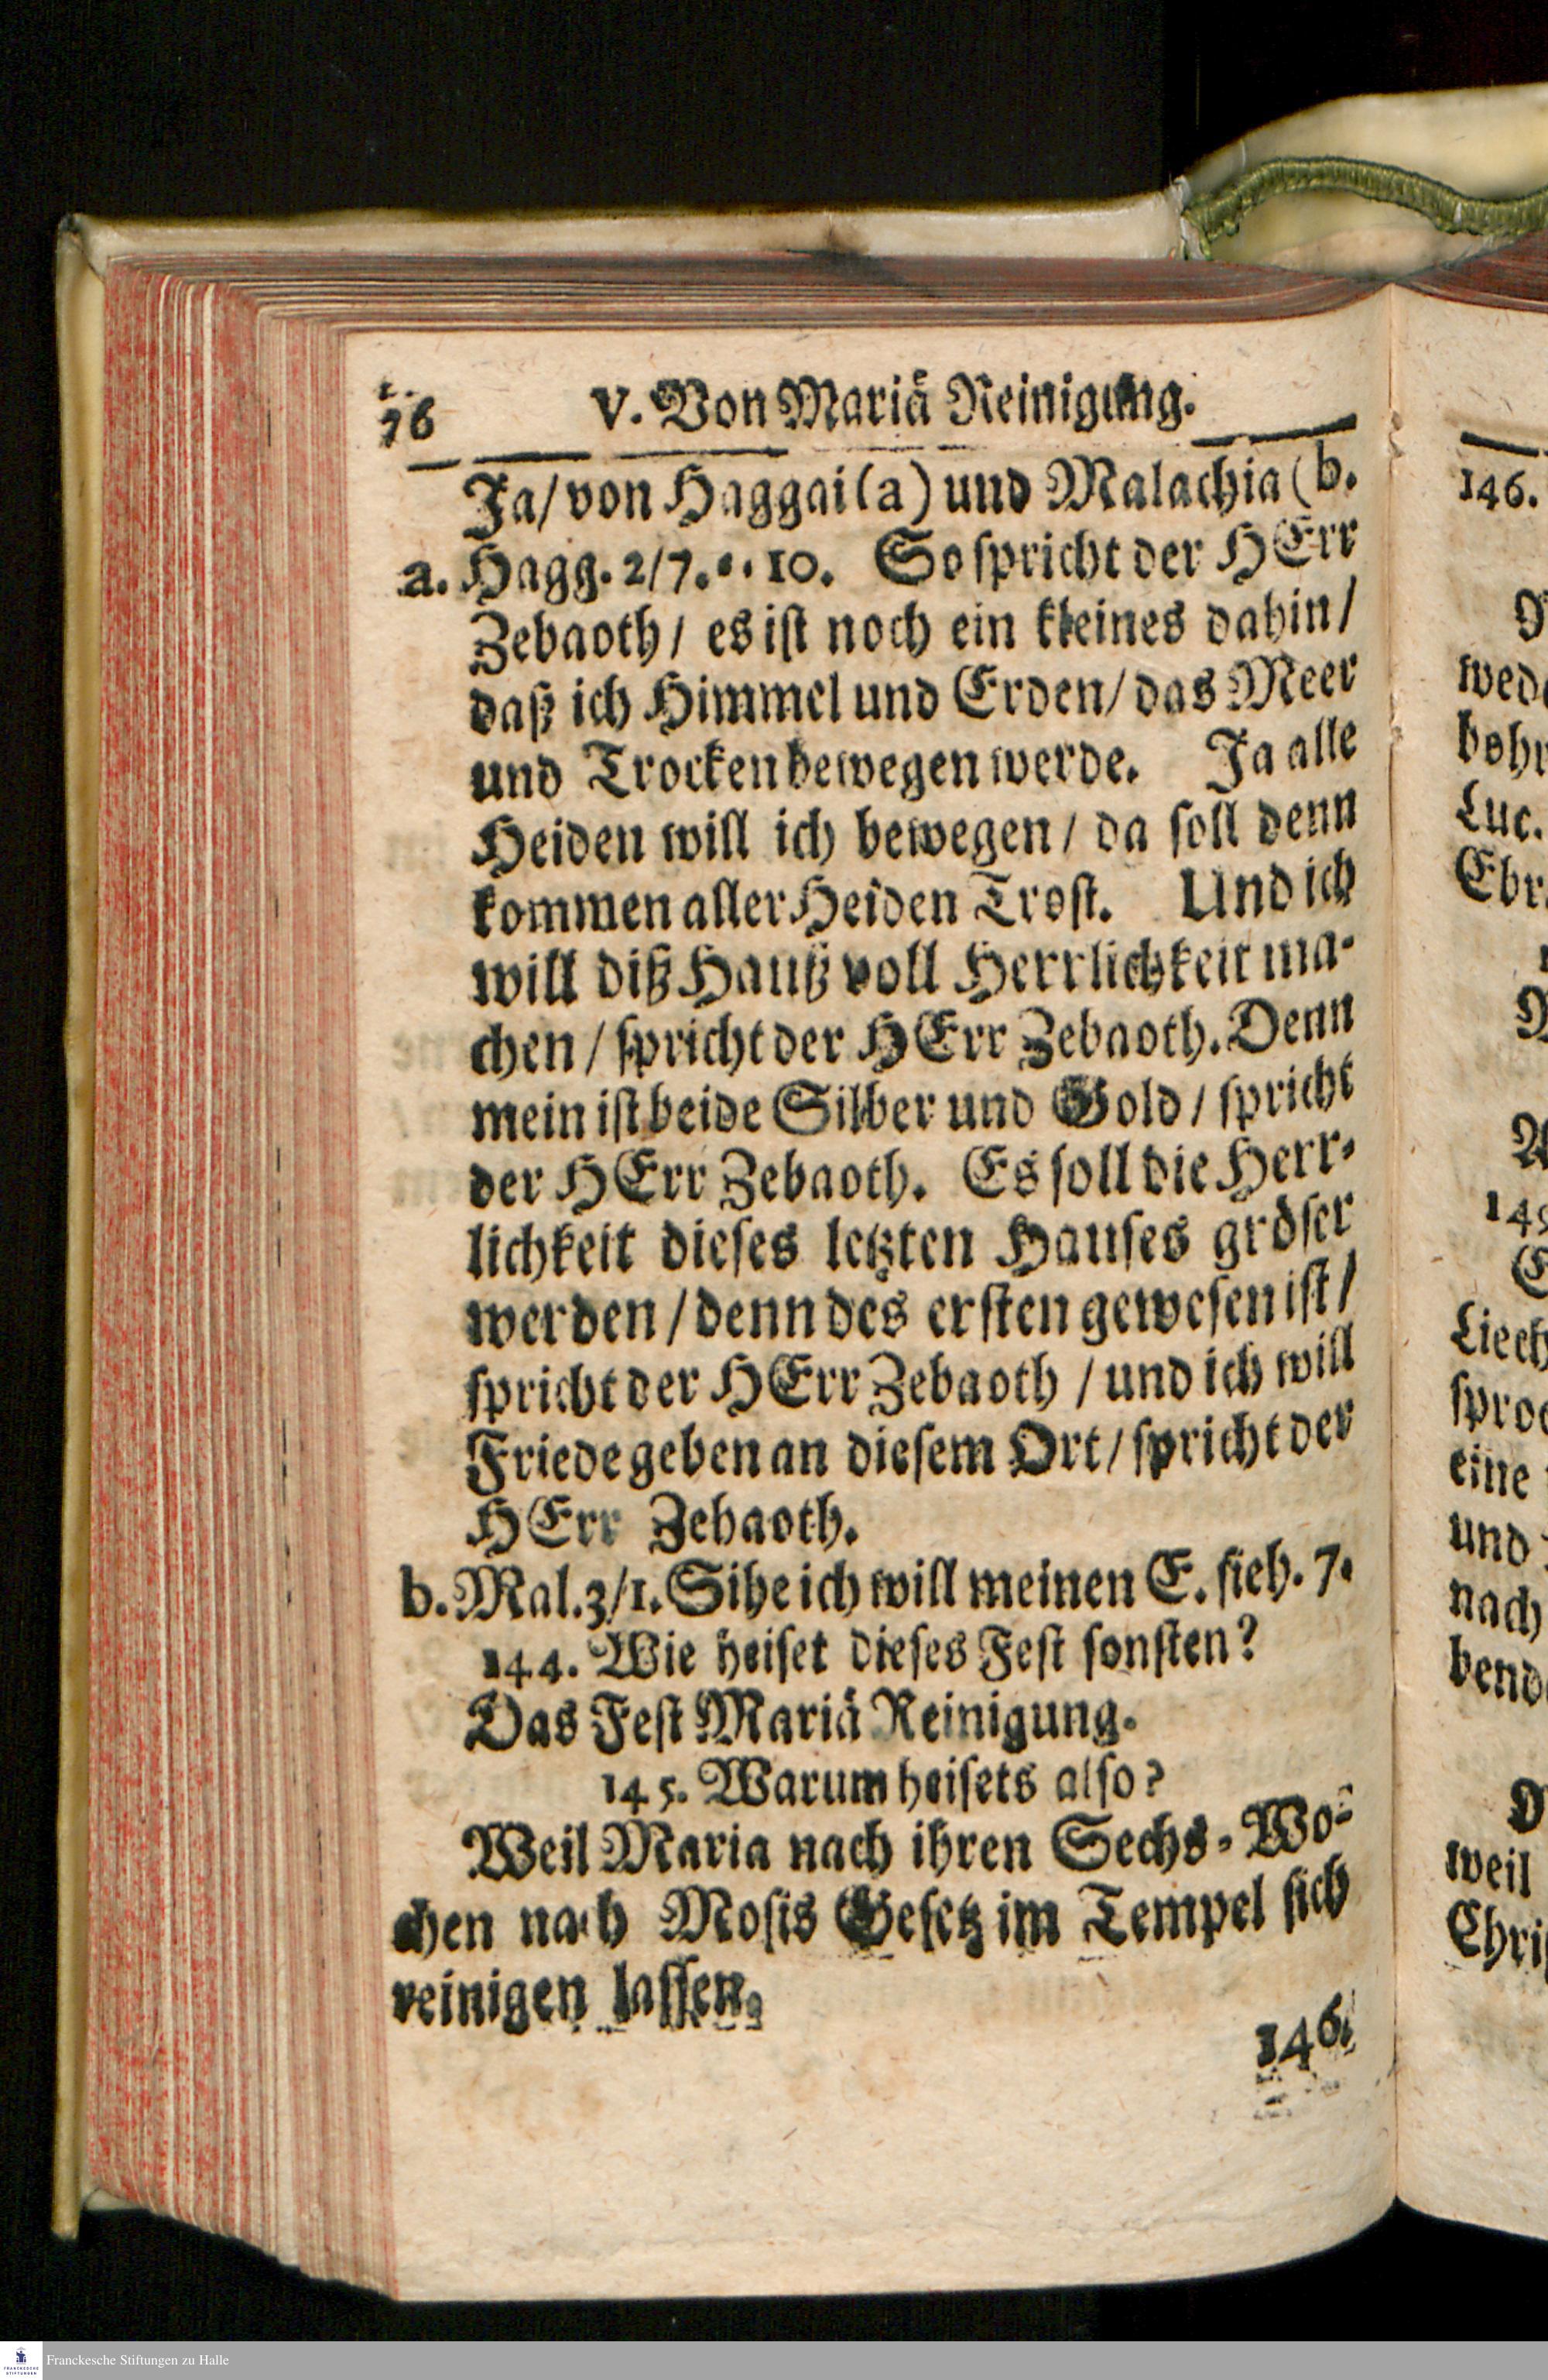 76 V. Von Mariä Reinigung.
Ja/ von Haggai (a) und Malachia (b.
a. Hagg. 2/7. .. 10. So spricht der HErr
Zebaoth/ es ist noch ein kleines dahin/
daß ich Himmel und Erden/ das Meer
und Trocken bewegen werde. Ja alle
Heiden will ich bewegen/ da soll denn
kommen aller Heiden Trost. Und ich
will diß Hauß voll Herrlichkeit ma-
chen/ spricht der HErr Zebaoth. Denn
mein ist beide Silber und Gold/ spricht
der HErr Zebaoth. Es soll die Herr-
lichkeit dieses letzten Hauses gröser
werden/ denn des ersten gewesen ist/
spricht der HErr Zebaoth/ und ich will
Friede geben an diesem Ort/ spricht der
HErr Zebaoth.
b. Mal. 3/1. Sihe ich will meinen E. sieh. 7.
144. Wie heiset dieses Fest sonsten?
Das Fest Mariä Reinigung.
145. Warum heisets also?
Weil Maria nach ihren Sechs-Wo-
chen nach Mosis Gesetz im Tempel sich
reinigen lassen.
146.
146.
wed
bohr
Luc.
Ebr.
149
Liech
spro
eine
und
nach
bend
weil
Chri
Franckesche Stiftungen zu Halle